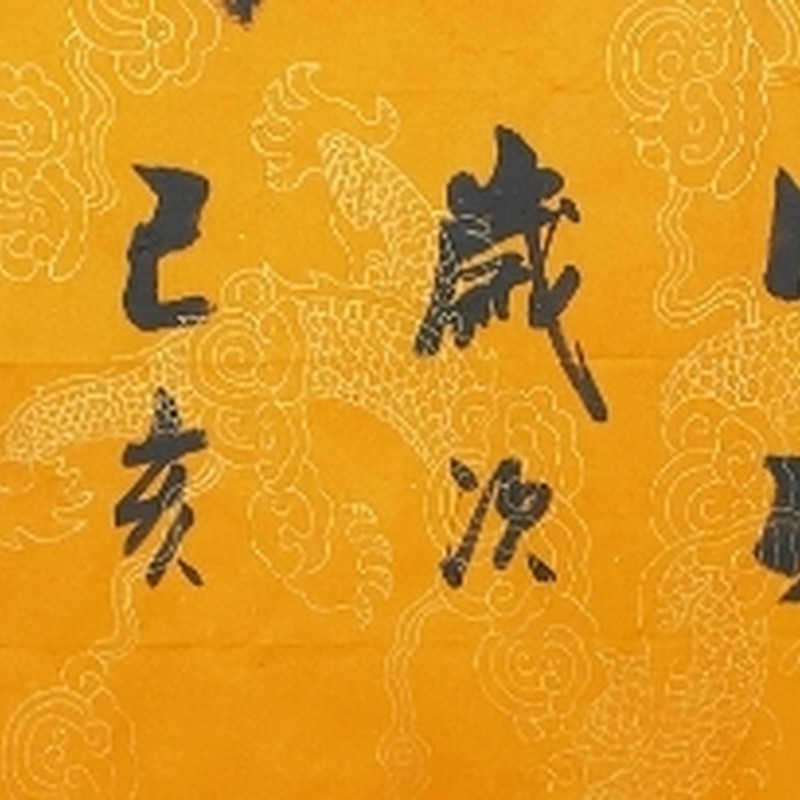 歲次
己亥